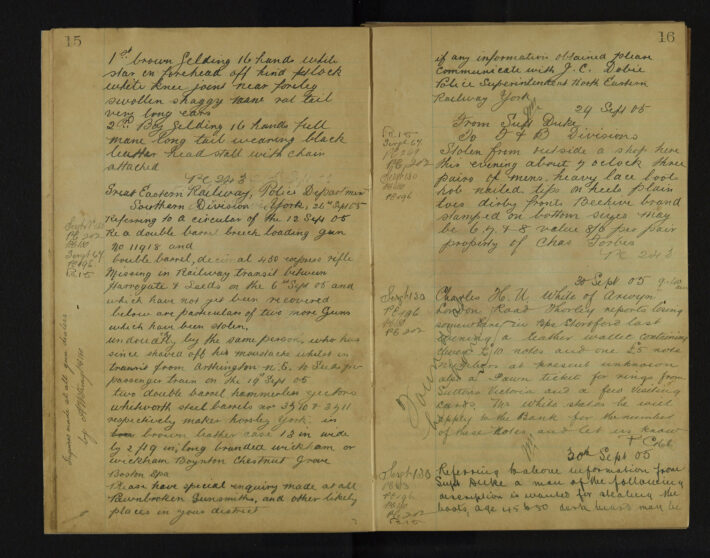 15
1st brown Gelding 16 hands white
star on forehead off hind fetlock
white knee joint near foreleg
swollen shaggy mane rat tail
very long ears
2nd Bay Gelding 16 hands full
mane long tail wearing black
leather head stall with chain
attached
PC 243
Great Eastern Railway, Police Department
Southern Division York, 26th Sept 05
Referring to a circular of the 12 Sept 05
Re a double barrel breech loading gun
No 11918 and
double barrel, decimal 450 express rifle
Missing in Railway transit between
Harrogate & Leeds on the 6th Sept 05 and
which have not yet been recovered
below are particulars of two more Guns
which have been stolen,
undoubtly by the same person, who has
since shaved off his moustache whilst in
transit from Arthington N.E. to Leeds per
passenger train on the 19th Sept 05
two double barrel hammerless ejectors
whitworth steel barrels nos 3410 & 3411
respectively maker horsley York in
brown leather case 13 in wide
by 2 ft 9 in long branded wickham or
wickham Boynton Chestnut Grove
Boston Spa
Please have special enquiry made at all
Pawnbrokers Gunsmiths, and other likely
places in your district
Enquiry made at all gun dealers
by
16
if any information obtained please
communicate with J. E. Dobie
Police Superintendent North Eastern
Railway York
29 Sept 05
From Supt Duke
To & B Divisions
Stolen from outside a shop here
this evening about 7 oclock three
pairs of mens heavy lace boots
hob nailed tips on heels plain
toes dirty fronts Beehive brand
stamped on bottom sizes may
be 6. 7. & 8 value 8/6 per pair
property of Chas Forbes
PC 243
30 Sept 05 9-40
Charles H. U. White of
London Road Thorley reports losing
somewhere in Bps Stortford last
evening a leather wallet containing
£10 notes and one £5 note
numbers at present unknown
also a Pawn ticket for rings from
Suttons Victoria and a few visiting
cards. Mr White states he will
apply to the Bank for the number
of these Notes, and let us know
30th Sept 05
Referring to above information from
Supt Duke a man of the following
description is wanted for stealing the
boots, age 45 to 50 dark beard may be